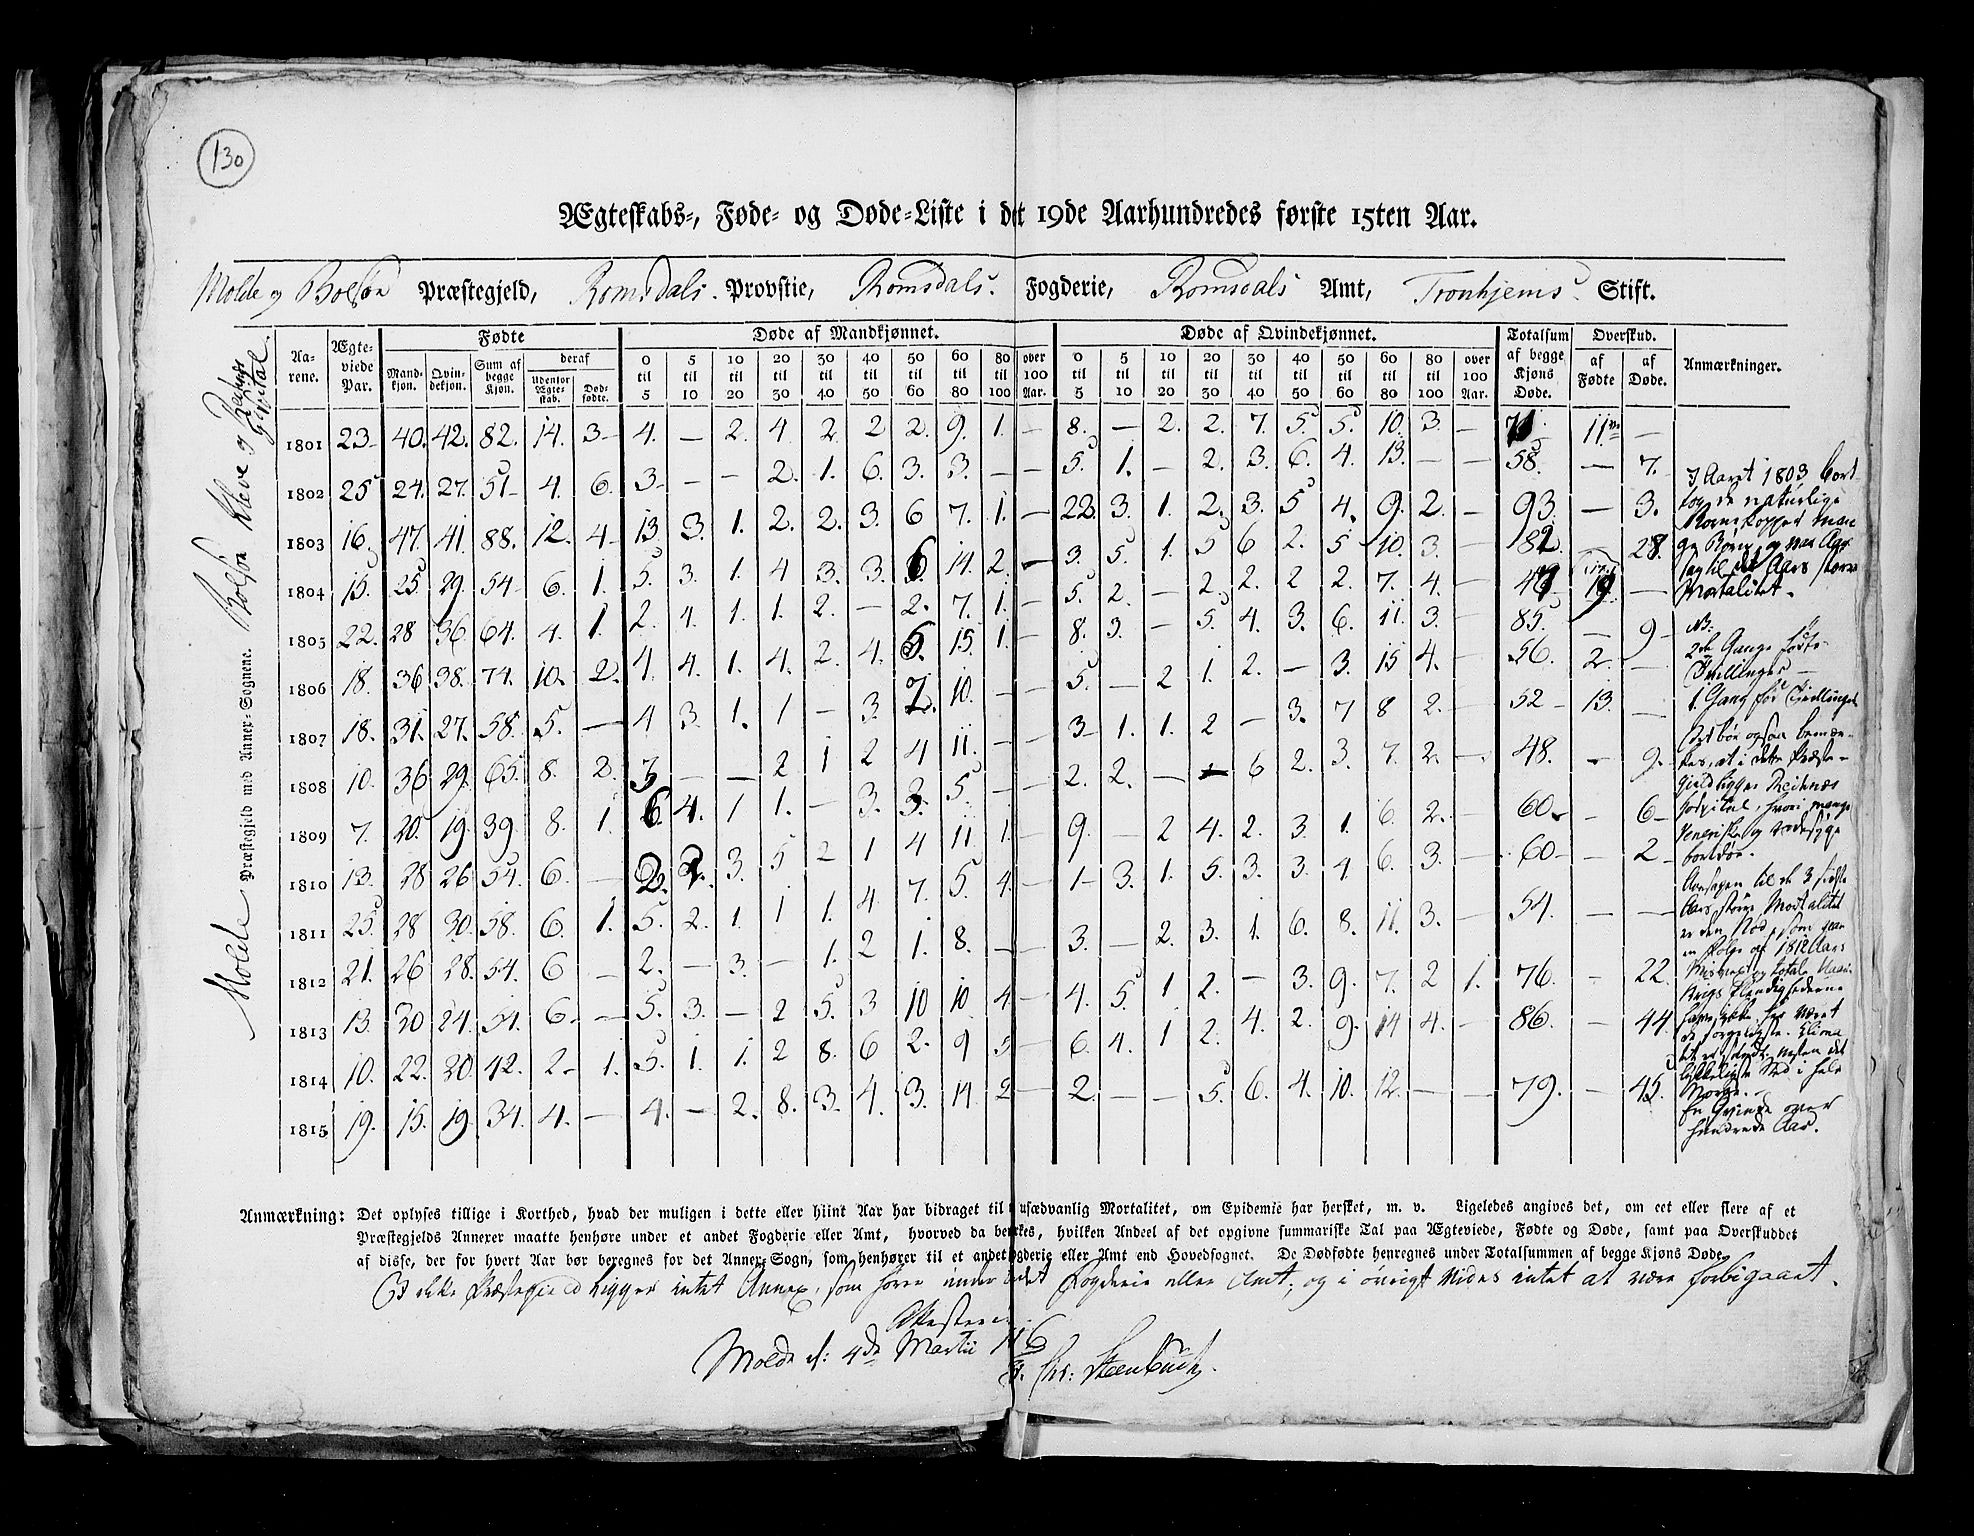 130
Ægteskabs-, Føde- og Døde-Liste i det 19de Aarhundredes første 15ten Aar.
Molde og Bolsøe Præstegjeld, Romsdals Provstie, Romsdals Fogderie, Romsdals Amt, Tronhjems Stift.
Molde Præstegjeld med Annex-Sognene. Bolsøe Kleve og Hospital.
Aarene. Ægteviede Par. Fødte Døde af Mandkjønnet. Døde af Qvindekjønnet. Totalsum af begge Kjøns Døde. Overskud. Anmærkninger.
Mandkjøn. Qvindekjøn. Sum af begge Kjøn. deraf Udenfor Ægteskab. Dødfødte. 0 til 5 5 til 10 10 til 20 20 til 30 30 til 40 40 til 50 50 til 60 60 til 80 80 til 100 over 100 Aar. 0 til 5 5 til 10 10 til 20 20 til 30 30 til 40 40 til 50 50 til 60 60 til 80 80 til 100 over 100 Aar. af Fødte af Døde.
1801 23 40. 42. 82. 14. 3 4. — 2. 4 2 2 2. 9. 1. — 8. — 2. 2. 7. 5. 5. 10. 3. — 71 11 —
1802 25 24. 27. 51 4. 6. 3 — — 2. 1. 6. 3. 3. — — 5. 1. — 2. 3. 6. 4. 13. — — 58. — 7.
1803 16. 47. 41. 88. 12. 4 13. 3. 1. 2. 2. 3. 6 7. 1. — 22. 3. 1. 2. 3. 5 4. 9. 2. — 93. — 3.
1804 15. 25. 29. 54 6. 1. 5. 3. 1. 4 3. 3. 6 14. 2. — 3. 5. 1. 5 6 2. 5 10. 3. — 82. — 28.
1805 22. 28 36. 64. 4. 1. 2. 4. 1. 1. 2. — 2. 7. 1. — 5. 2. — 2. 2. 2 2. 7. 4. — 19 —
1806 18. 36 38. 74. 10. 2. 4. 4. 1. 4. 2. 4. 5. 15. 1. — 8. 3. — 5. 4. 3. 6. 11. 3. — 85. — 9
1807 18. 31. 27. 58. 5. — 4 3. 1. 1 — 3. 2. 10. — — 5. — 2 1. 2. — 3. 15 4. — 56. 2. —
1808 10. 36 29. 65. 8. 2. 3 — — 2 1 2 4 11. — — 3 1. 1. 2 — 3. 7 8 2. — 52 13. —
1809 7. 20. 19. 39. 8. 1. 6. 4. 1 1. — 3. 3. 5. — — 2. 2. — 1 6 2. 3. 7. 2. — 48. — 9.
1810 13. 28 26 54. 6. — 2. 2. 3. 5 2 1 4 11. 1. — 9. — 2 4. 2. 3. 1. 6. 2. — 60 — 6
1811 25. 28 30. 58. 6. 1. 5. 2. 1 1 1. 4 7. 5. 4. — 1 3. 1. 5. 3. 3. 4. 6. 3. — 60 — 2
1812 21. 26 28. 54. 6 — 2. — 3. — 1. 2 1. 8. — — 3. — 2. 3. 1. 6. 8. 11. 3. — 54. — —
1813 13. 30 24. 54. 6 — 5. 3. — 2 5. 3 10 10. 4 — 4. 5. 1 2. — 3. 9. 7. 2 1. 76. — 22.
1814 10. 22. 20. 42. 2 1. 5. 1. 1. 2 8. 6 2. 9 5 — 6. 4. 1 2. 4. 2. 9. 14 4. — 86. — 44.
1815 19. 15. 19. 34. 4. — 4. — 2. 8. 3. 4. 3. 14. 2 — 2. — — 5. 6. 4. 10. 12. — — 79. — 45.
I Aaret 1803 bort
tog de naturlige
Børnekopper man
ge Børn, og var Aar
sag til det Aars større
Mortalitet.
NB.
2de Gange fødte
Tvillinger —
1. Gang fød Tvillinger
Det bør ogsaa bemær-
kes, at i dette Præste-
gield ligger Reitnæs
Hospital, hvori mange
Veneriske og Radesyge
bortdøe.
Aarsagen til de 3 sidste
Aars større Mortalitet
er den Nød, som var
en Følge af 1812 Aars
Misvæxt og totale
Krigs
En Qvinde over
hundrede Aar.
Anmærkning: Det oplyses tillige i Korthed, hvad der muligen i dette eller hiint Aar har bidraget til usædvanlig Mortalitet, om Epidemie har hersket, m. v. Ligeledes angives det, om eet eller flere af et
Præstegjelds Annexer maatte henhøre under et andet Fogderie eller Amt, hvorved da bemærkes, hvilken Andeel af det opgivne summariske Tal paa Ægteviede, Fødte og Døde, samt paa Overskuddet
af disse, der for hvert Aar bør beregnes for det Annex-Sogn, som henhører til et andet Fogderie eller Amt end Hovedsognet. De Dødfødte henregnes under Totalsummen af begge Kjøns Døde.
I dette Præstegield ligger intet Annex, som hører under andet Fogderie eller Amt; og i øvrigt vides intet at være forbigaaet.
Attesteres
Molde d: 4de Martii 1816
Chr: Steenbuch.